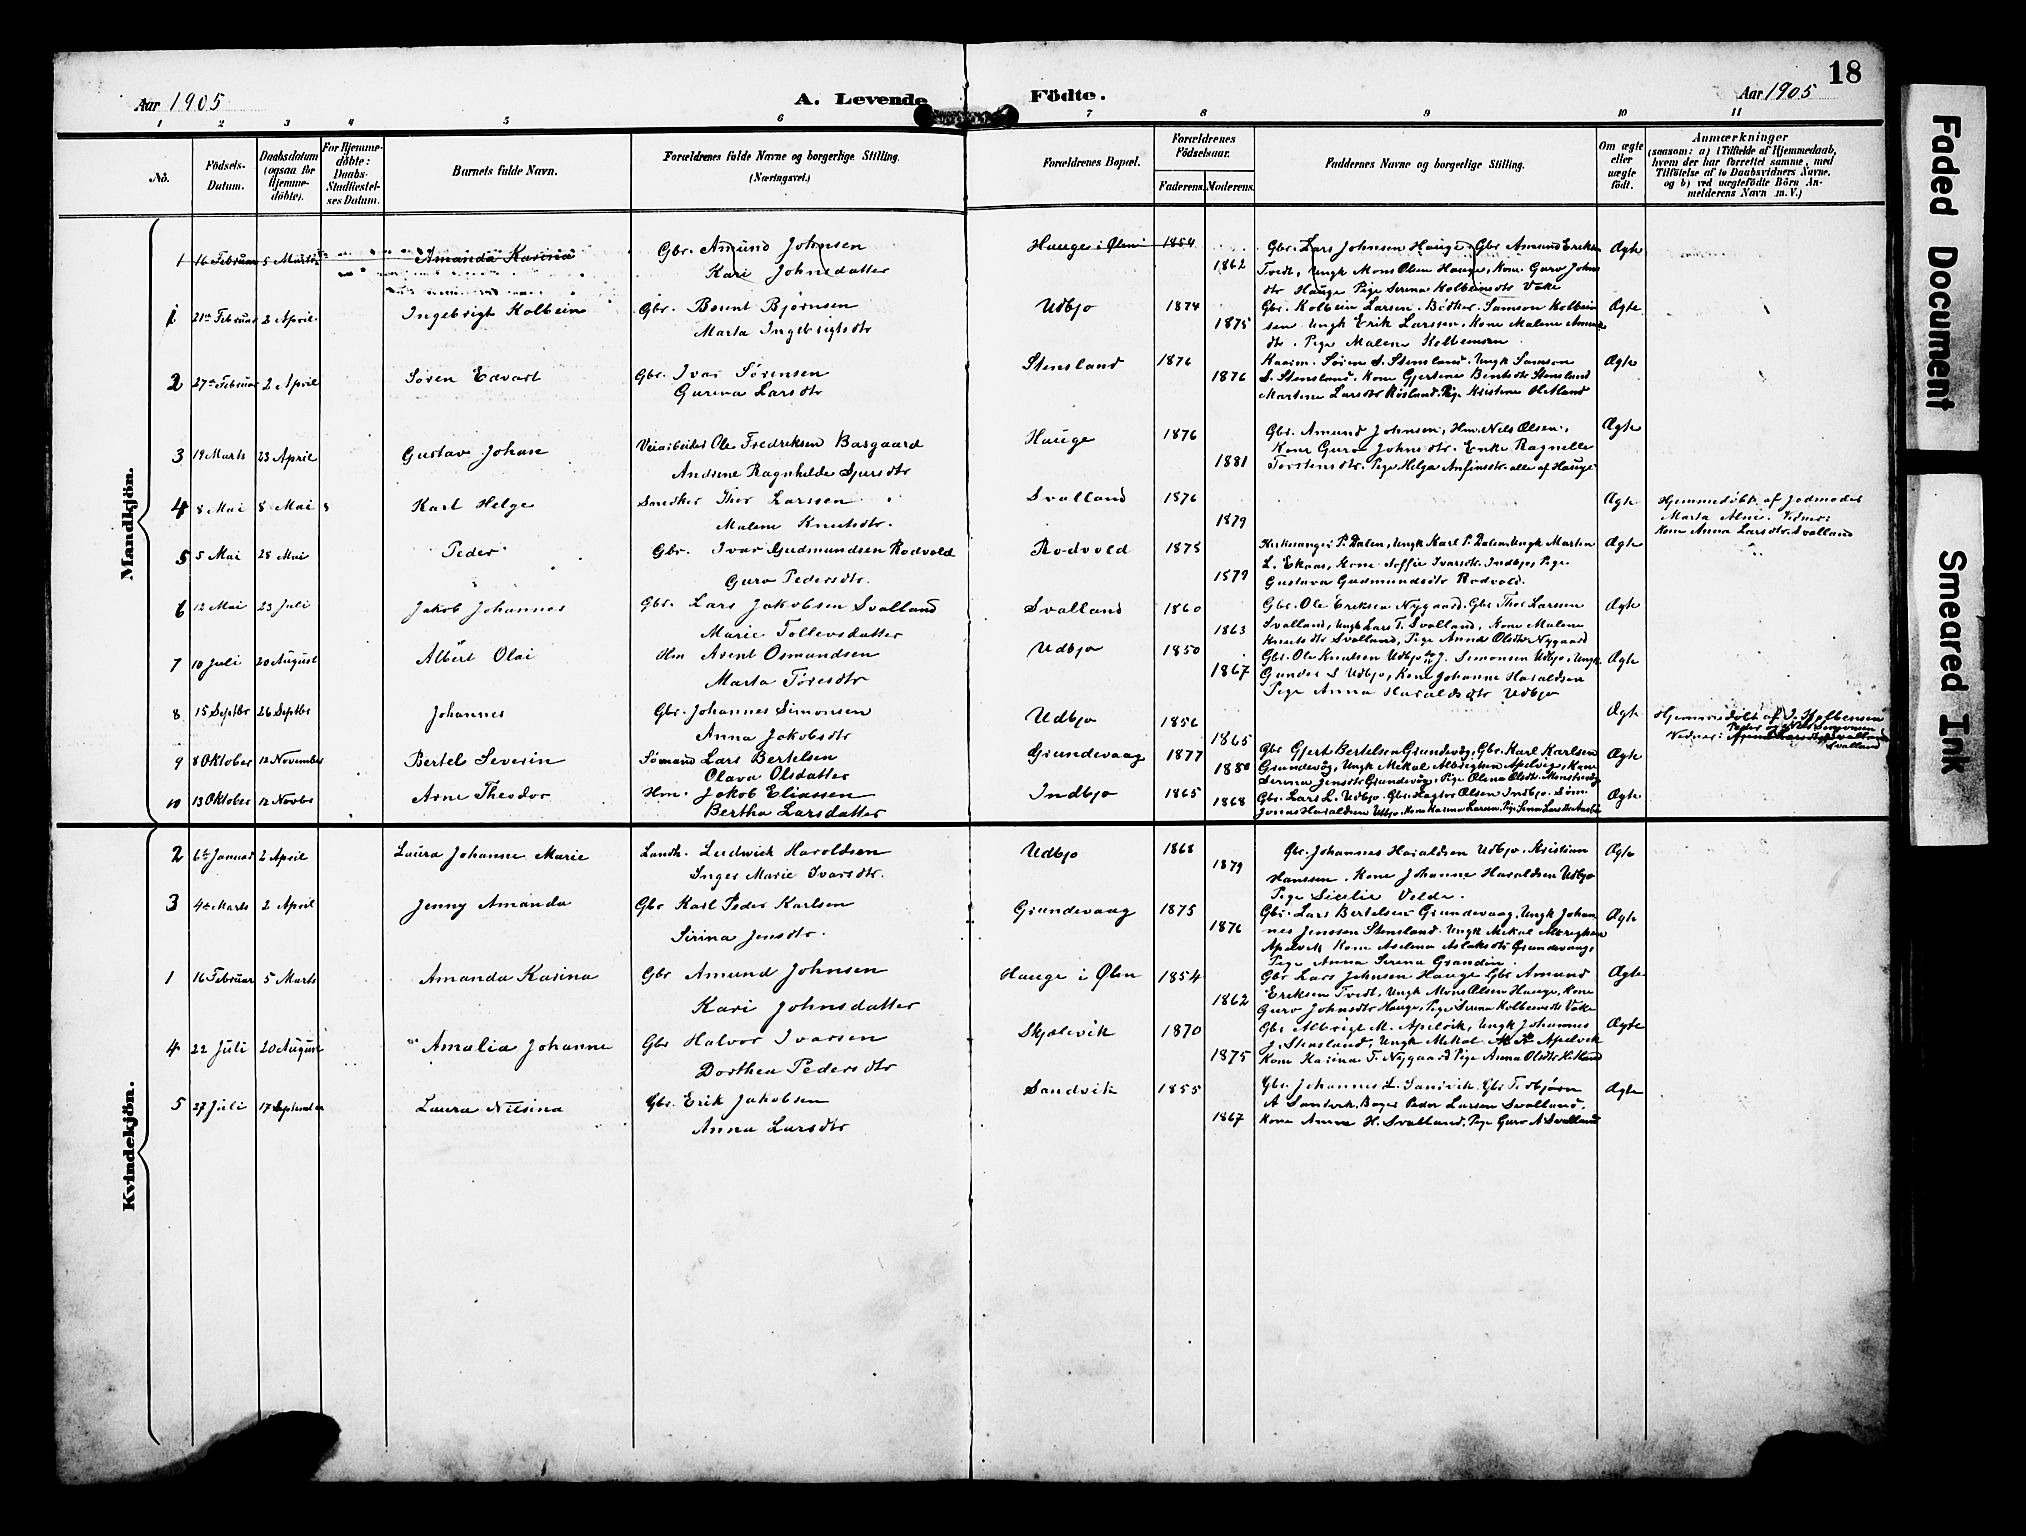 18
Aar 1905
A. Levende Födte.
Aar 1905
1 2 3 4 5 6 7 8 9 10 11
No.
Födsels-Datum.
Daabsdatum (ogsaa for Hjemme-döbte).
For Hjemme-döbte: Daabs-Stadfæstel-ses Datum.
Barnets fulde Navn.
Forældrenes fulde Navne og borgerlige Stilling. (Næringsvei.)
Forældrenes Bopæl.
Forældrenes Födselsaar.
Faderens. Moderens.
Faddernes Navne og borgerlige Stilling.
Om ægte eller uægte födt.
Anmærkninger
(saasom: a) i Tilfælde af Hjemmedaab,
hvem der har forrettet samme, med
Tilföielse af to Daabsvidners Navne,
og b) ved uægtefödte Börn An-
melderens Navn m. V.)
Mandkjön.
1 16 Februar 5 Marts Amanda Karina Gbr. Amund Johnsen Hauge i Ølen 1854 Gbr. Lars Johnsen Hauge, Gbr Amund Eriksen Ægte
Kari Johnsdatter 1862 Tvedt, Ungk Mons Olsen Hauge, Kone Guro Johns
dtr Hauge Pige Serina Kolbeinsdtr Vake
1 21de Februar 2 April Ingebrigt Kolbein Gbr. Bernt Bjørnsen Udbjo 1874 Gbr. Kolbein Larsen. Bødker. Samson Kolbein Ægte
Marta Ingebrigtsdtr 1875 sen Ungk Erik Larssen. Kone Malene Amunds
dtr. Pige Malene Kolbensen
2 27de Februar 2 April Søren Edvart Gbr. Ivar Sørensen Stensland 1876 Kaarm. Søren S. Stensland. Ungk Samson Ægte
Gurina Larsdtr 1876 S. Stensland. Kone Gjertine Bentsdtr Stensland
Martine Larsdtr Røsland. Pige Kristine Oletland
3 19 Marts 23 April Gustav Johan Veiarbeider Ole Fredriksen Basgaard Hauge 1876 Gbr. Amund Johnsen, Hm. Nils Olsen, Ægte
Andrine Ragnhilde Sjursdtr 1881 Kone Guro Johnsdtr. Enke Ragnelle
Torstensdtr. Pige Helga Anfinsdtr. alle af Hauge
4 8 Mai 8 Mai 8 Karl Helge Snedker Thor Larssen Svalland 1876 Ægte Hjemmedøbt af Jodmoder
Malene Knutsdtr. 1879 Marta Alne. Vidner:
Kone Anna Larsdtr Svalland
5 5 Mai 28 Mai Peder Gbr. Ivar Gudmundsen Rodvold Rodvold 1875 Kirkesanger P. Dalen, Ungk Karl P. Dalen, Ungk Martin Ægte
Guro Pedersdtr. 1879 L. Ekaas, Kone Soffie Ivarsdtr. Indbjo, Pige
Gustava Gudmundsdtr Rodvold.
6 12 Mai 23 Juli Jakob Johannes Gbr. Lars Jakobsen Svalland Svalland 1860 Gbr. Ole Eriksen Nygaard. Gbr Thor Larsen Ægte
Marie Tollevsdatter 1863 Svalland, Ungk Lars T. Svalland, Kone Malene
Knutsdtr Svalland, Pige Anna Olsdtr Nygaard
7 10 Juli 20 August Albert Olai Hm Arent Osmundsen Udbjo 1850 Gbr. Ole Knutsen Udbjo J. Simonsen Udbjo, Ungk Ægte
Marta Tøresdtr 1867 Gunder S Udbjo, Kone Johanne Haraldsen
Pige Anna Haraldsdtr Udbjo
8 15 Septbr 26 Septbr Johannes Gbr. Johannes Simonsen Udbjo 1856 Ægte Hjemmedøbt af I. Kolbensen
Anna Jakobsdtr 1865 Vidner: Peder og Nils Simonsen
Svalland
9 8 Oktober 12 November Bertel Severin Sømand Lars Bertelsen Grundevaag 1877 Gbr Gjert Bertelsen Grundevåg, Gbr. Karl Karlsen Ægte
Olava Olsdatter 1880 Grundevåg, Ungk Mekal Albrigtsen Apelvig, Kone
Serina Jensdtr Grundevåg, Pige Olena Olsdtr
10 13 Oktober 12 Novbr Arne Theodor Hm. Jakob Eliassen Indbjo 1865 Gbr. Lars L. Udbjo. Gbr. Hagtor Olsen Indbjo. Ægte
Bertha Larsdatter 1868 Jonas Haraldsen Udbjo.
Kvindekjön.
2 6te Januar 2 April Laura Johanne Marie Landh. Ludwick Haroldsen Udbjo 1868 Gbr. Johannes Haraldsen Udbjo. Kristian Ægte
Inger Marie Ivarsdtr. 1879 Hanssen. Kone Johanne Haraldsen Udbjo
Pige Sicelie Velde.
3 4de Marts 2 April Jenny Amanda Gbr Karl Peder Karlsen Grundevaag 1875 Gbr. Lars Bertelsen Grundevaag, Ungk Johan Ægte
Sirina Jensdtr. 1876 nes Jenssen Stensland. Ungk Mekal Albrigtsen
Apelvik Kone Aselena Aslaksdtr Grundevaag.
Pige Anna Serena Grandin.
1 16 Februar 5 Marts Amanda Karina Gbr Amund Johnsen Hauge i Ølen 1854 Gbr Lars Johnsen Hauge Gbr Amund Ægte
Kari Johnsdatter 1862 Eriksen Tvedt, Ungk Mons Olsen Hauge, Kone
Guro Johnsdtr Hauge, Pige Serina Kolbeinsdtr Vake
4 22 Juli 20 August Amalia Johanne Gbr Halvor Ivarsen Skjolevik 1870 Gbr Albrigt M. Apelvik, Ungk Johannes Ægte
Dorthea Pedersdtr 1875 J. Stensland, Ungk Mekal Apelvik
Kone Karina T. Nygaard Pige Anna Olsdtr Hetland
5 27 Juli 17 September Laura Nilsina Gbr. Erik Jakobsen Sandvik 1855 Gbr. Johannes L. Sanivik. Gbr Torbjørn Ægte
Anna Larsdtr 1867 A Sandvik. Bager Peder Larsen Svalland.
Kone Anna H. Svalland. Pige Guro A Svalland
Faded Document
Smeared Ink